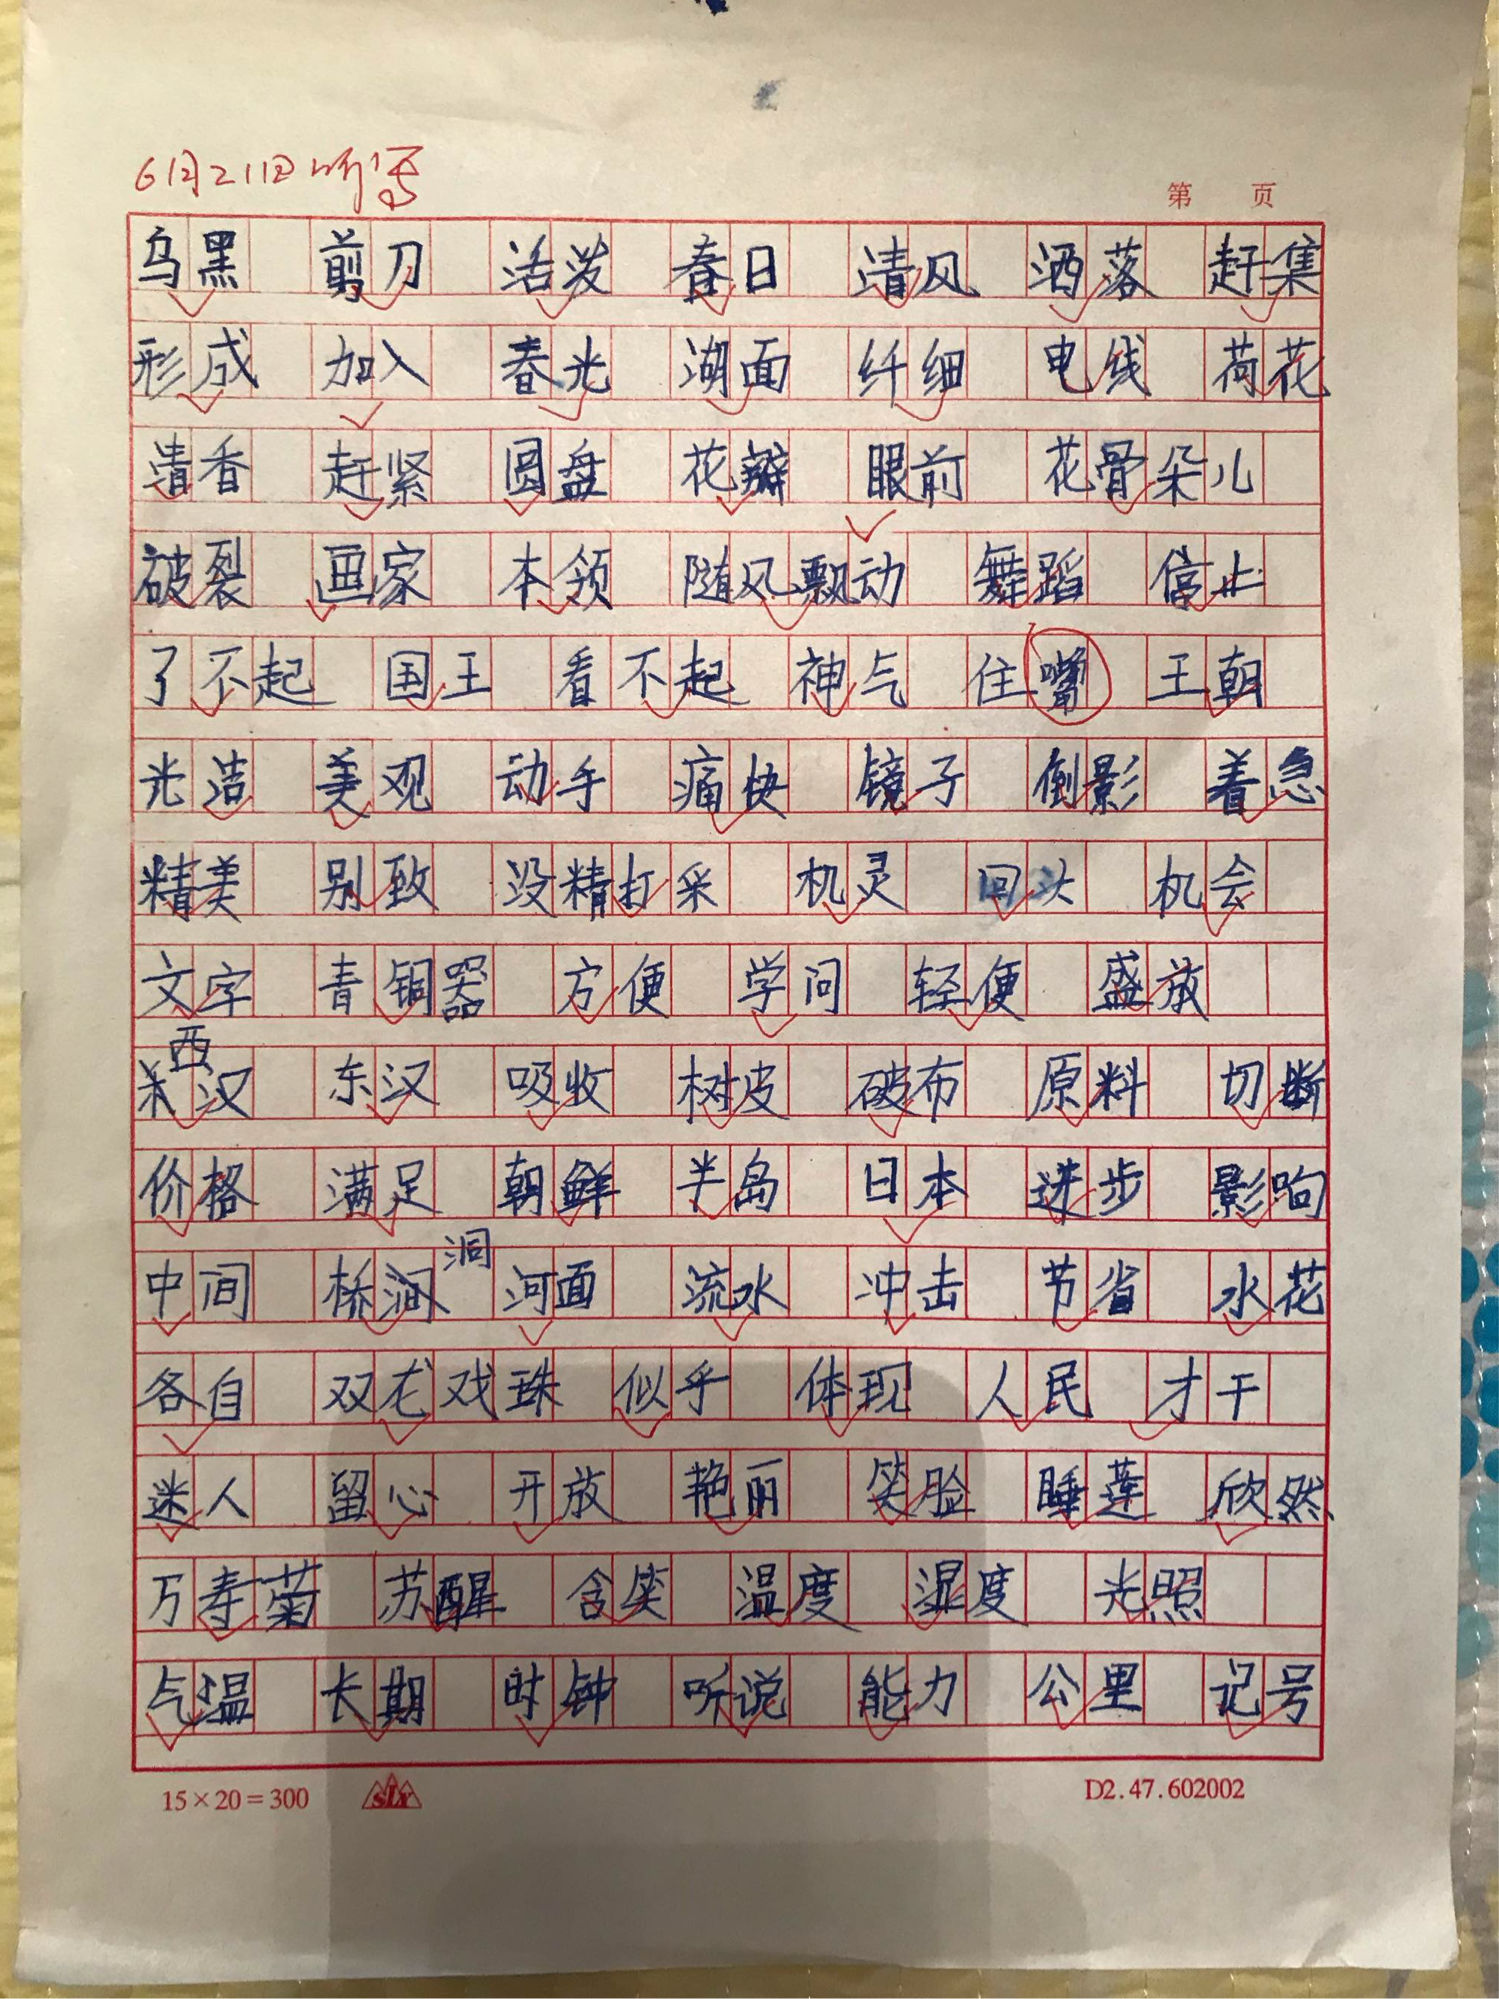 6月21日听写
第 页
乌黑 剪刀 活泼 春日 清风 洒落 赶集
形成 加入 春光 湖面 纤细 电线 荷花
清香 赶紧 圆盘 花瓣 眼前 花骨朵儿
破裂 画家 本领 随风飘动 舞蹈 停止
了不起 国王 看不起 神气 住嘴 王朝
光洁 美观 动手 痛快 镜子 倒影 着急
精美 别致 没精打采 机灵 回头 机会
文字 青铜器 方便 学问 轻便 盛放
西汉 东汉 吸收 树皮 破布 原料 切断
价格 满足 朝鲜 半岛 日本 进步 影响
中间 桥洞 河面 流水 冲击 节省 水花
各自 双龙戏珠 似乎 体现 人民 才干
迷人 留心 开放 艳丽 笑脸 睡莲 欣然
万寿菊 苏醒 含笑 温度 湿度 光照
气温 长期 时钟 听说 能力 公里 记号
15×20=300 SLY D2.47.602002